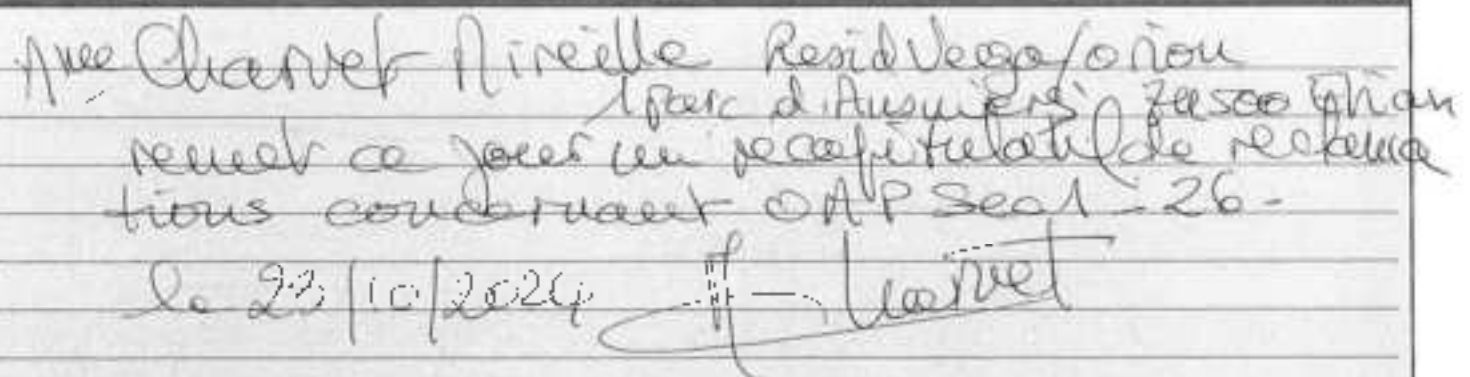 Mme Charvet Mireille Resid Vega/orion
1 parc d'Ausnières 74500 Evian
remet ce jour un recapitulatif de reclama
tions concernant OAP Sec1 - 26 -
le 23/10/2024 Charvet